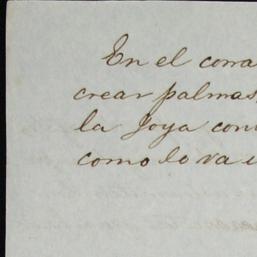 En el corra
crear palmas,
la Joya con
como lo va